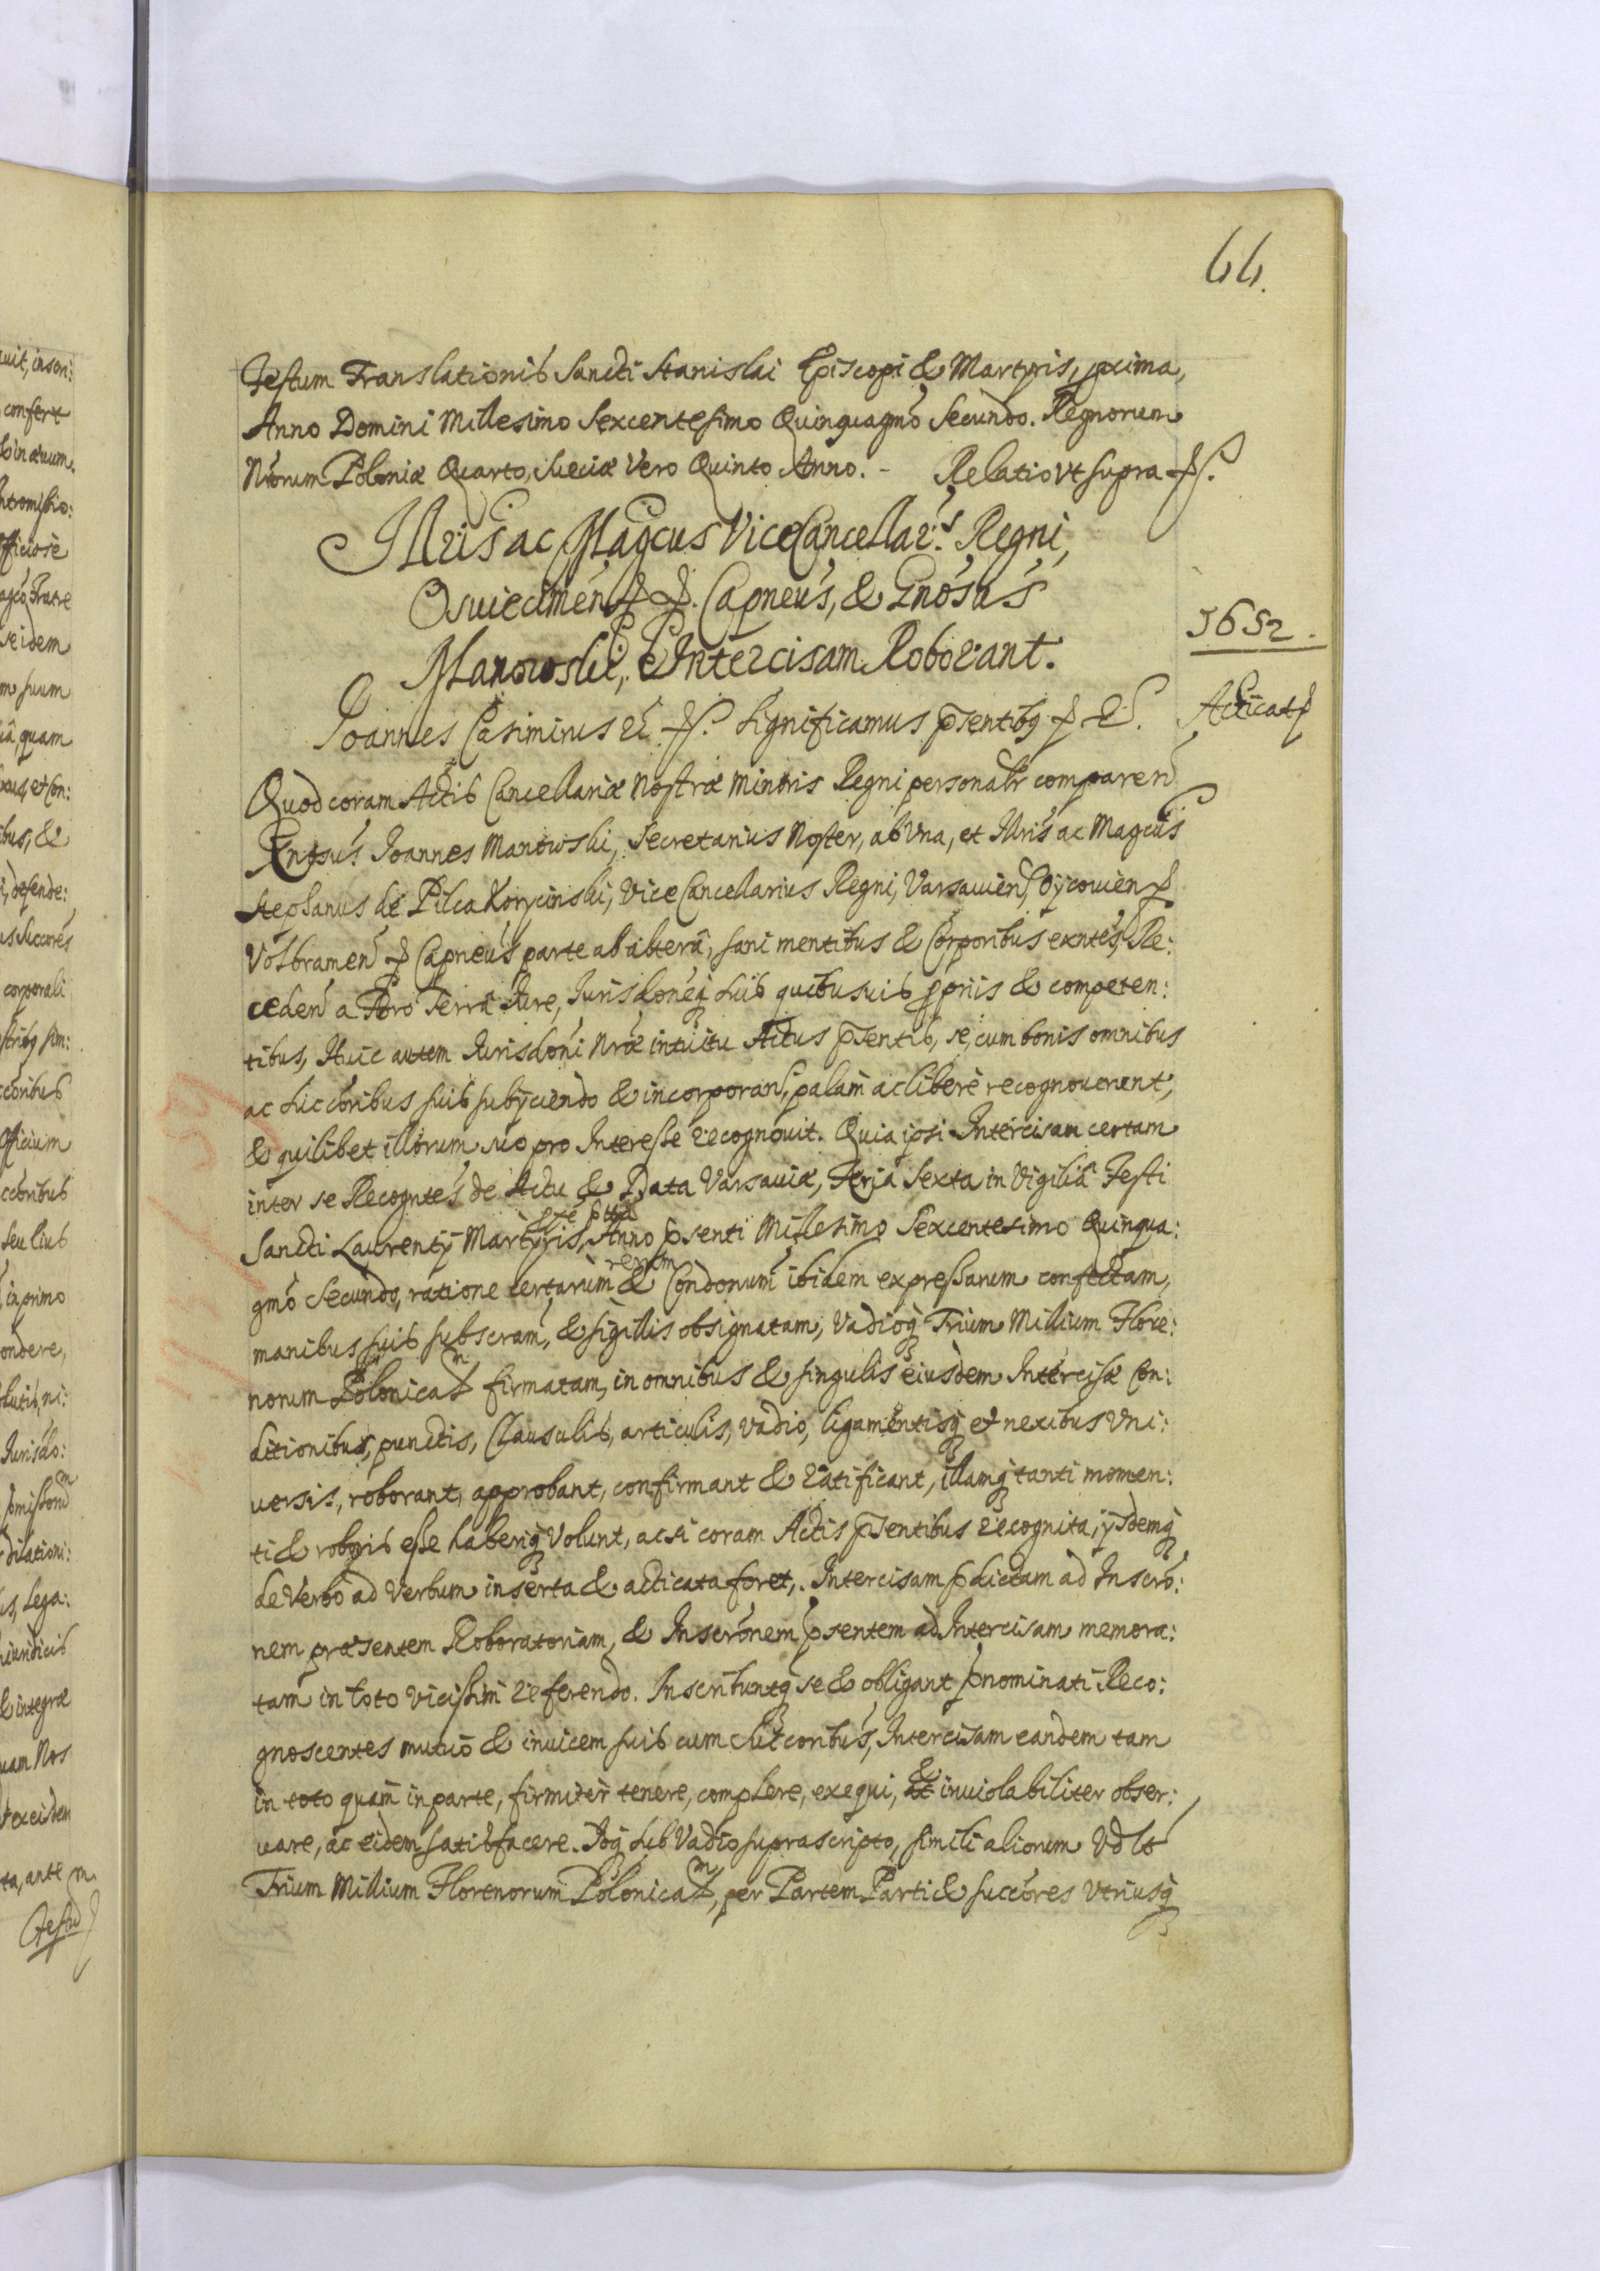 66.
Festum Translationis Sancti Stanislai Episcopi & Martyris, pxima,
Anno Domini Millesimo Sexcentesimo Quinquagmo Secundo. Regnorum
Nrorum Poloniæ Quarto, Sueciæ Vero Quinto Anno. - Relatio vt supra
Illris ac Magcus ViceCancellar. Regni,
Osuiecimen Capneus, & Gnosus
Manowski, Intercisam Roborant.
1652.
Acticat
Joannes Casimirus Significamus pntibq
Quod coram Actis Cancellariæ Nostræ Minoris Regni personalr comparen
Gnosus Joannes Manowski, Secretarius Noster, ab Vna, et Illris ac Magcus
Stephanus de Pilca Korycinski, ViceCancellarius Regni, Varsauien, Oycouien
Volbramen Capneus parte ab altera, sani mentibus & Corporibus exntes, Re:
ceden a Foro Terra Jure, Jurisdoneq suis quibusuis ppriis & competen:
tibus, Huic autem Jurisdoni Nræ intuitu Actus psentis, se, cum bonis omnibus
ac succoribus suis subijciendo & incorporan, palam ac liberè recognouerunt,
& quilibet illorum suo pro Interesse recognouit. Quia ipsi Intercisam certam
inter se Recogntes de Actu & Data Varsauiæ, Feria Sexta in Vigiliâ Festi
Sancti Laurentij Martyris, Anno psenti Millesimo Sexcentesimo Quinqua:
rerum
gmo Secundo, ratione certarum & Condonum ibidem expressarum confectam,
manibus suis subscram, & sigillis obsignatam, Vadioq Trium Millium Flore:
norum Polonica firmatam, in omnibus & singulis eiusdem Intercisæ Con:
ditionibus, punctis, Clausulis, articulis, vadio, ligamentisq et nexibus Vni:
uersis, roborant, approbant, confirmant & ratificant, illamq tanti momen:
ti & roboris esse haberiq Volunt, ac si coram Actis psentibus recognita, ijsdemq
de Verbo ad Verbum inserta & acticata foret, Intercisam pdictam ad Inscro:
nem præsentem Roboratoriam, & Inscronem psentem ad Intercisam memora:
tam in toto vicissim referendo. Inscribuntq se & obligant pnominati Reco:
gnoscentes mutuò & inuicem suis cum succoribus, Intercisam eandem tam
in toto quam in parte, firmiter tenere, complere, exequi, & inuiolabiliter obser:
uare, ac eidem satisfacere. Idq sub Vadio suprascripto, simili aliorum
Trium Millium Florenorum Polonica, per Partem Parti & succores Vtriusq